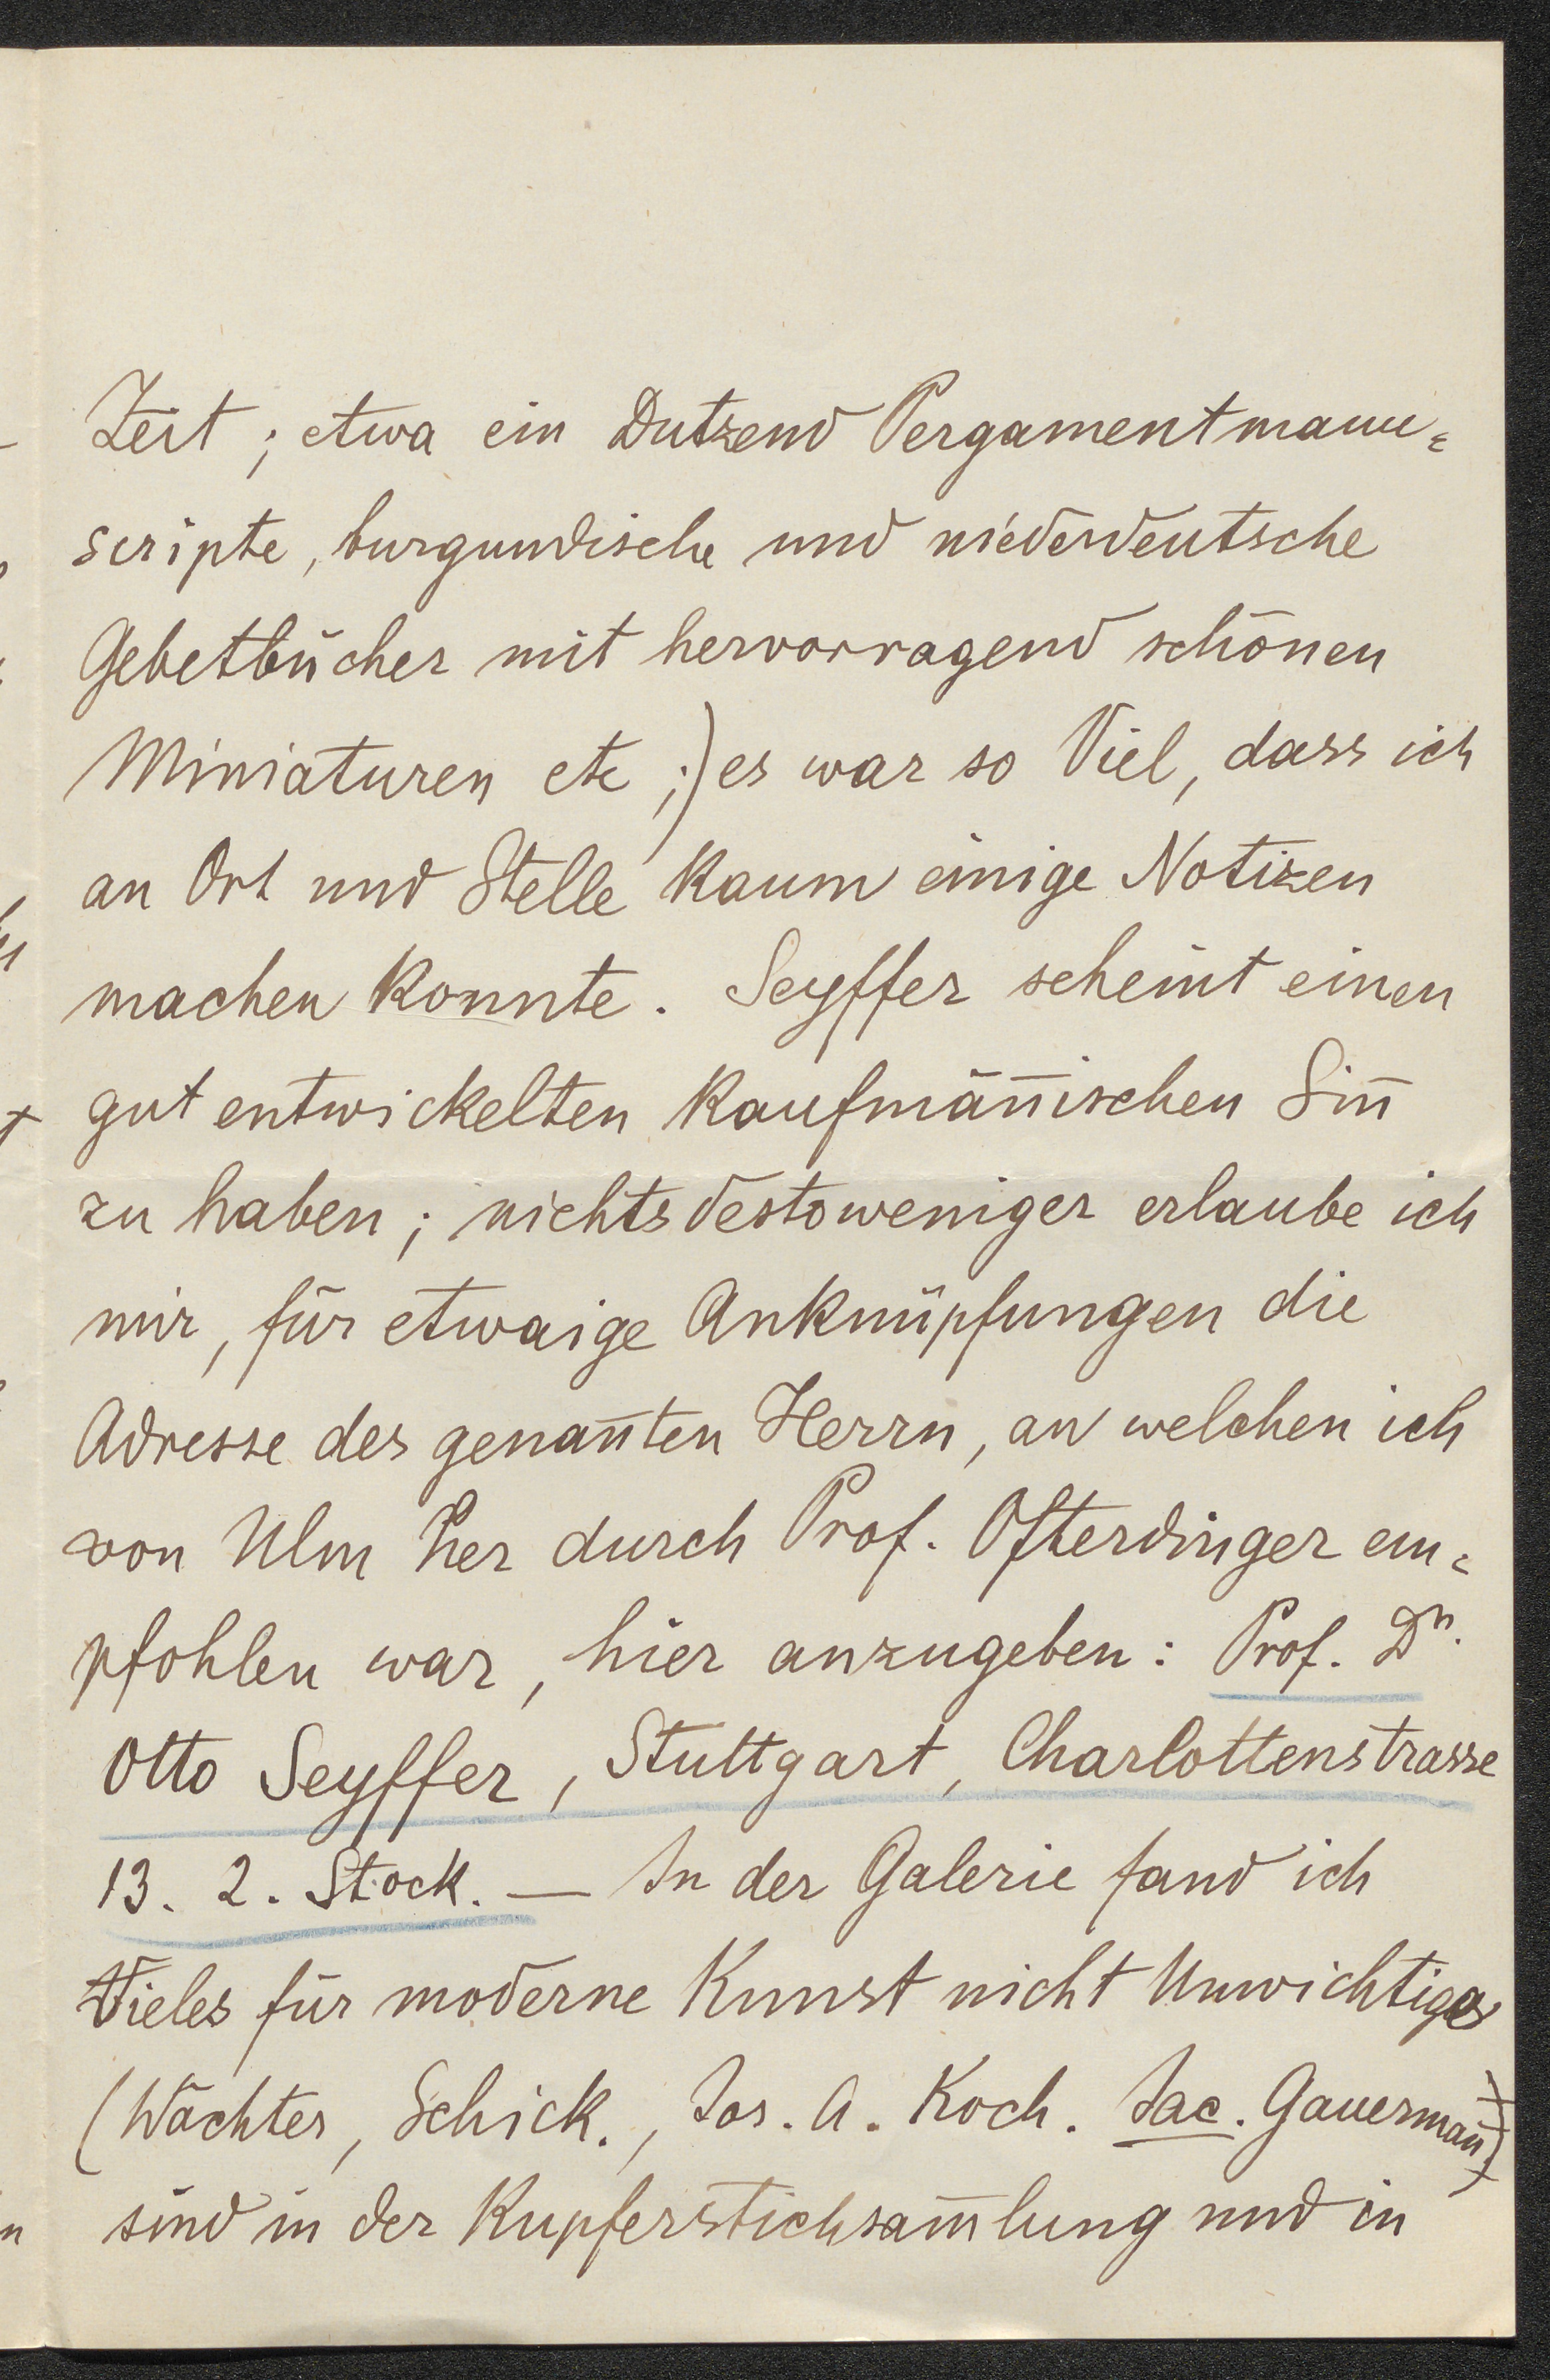 Zeit; etwa ein Dutzend Pergamentmanu=
scripte, burgundische und niederdeutsche
Gebetbücher mit hervorragend schönen
Miniaturen etc ;) es war so Viel, dass ich
an Ort und Stelle kaum einige Notizen
machen konnte. Seyffer scheint einen
gut entwickelten kaufmän̄ischen Sin̄
zu haben; nichtsdestoweniger erlaube ich
mir, für etwaige Anknüpfungen die
Adresse des genan̄ten Herrn, an welchen ich
von Ulm her durch Prof. Ofterdinger em=
pfohlen war, hier anzugeben: Prof. Dr.
Otto Seyffer, Stuttgart, Charlottenstrasse
13. 2. Stock. — In der Galerie fand ich
Vieles für moderne Kunst nicht Unwichtiges
(Wächter, Schick., Jos. A. Koch. Jac. Gauerman̄)
sind in der Kupferstichsam̄lung und in